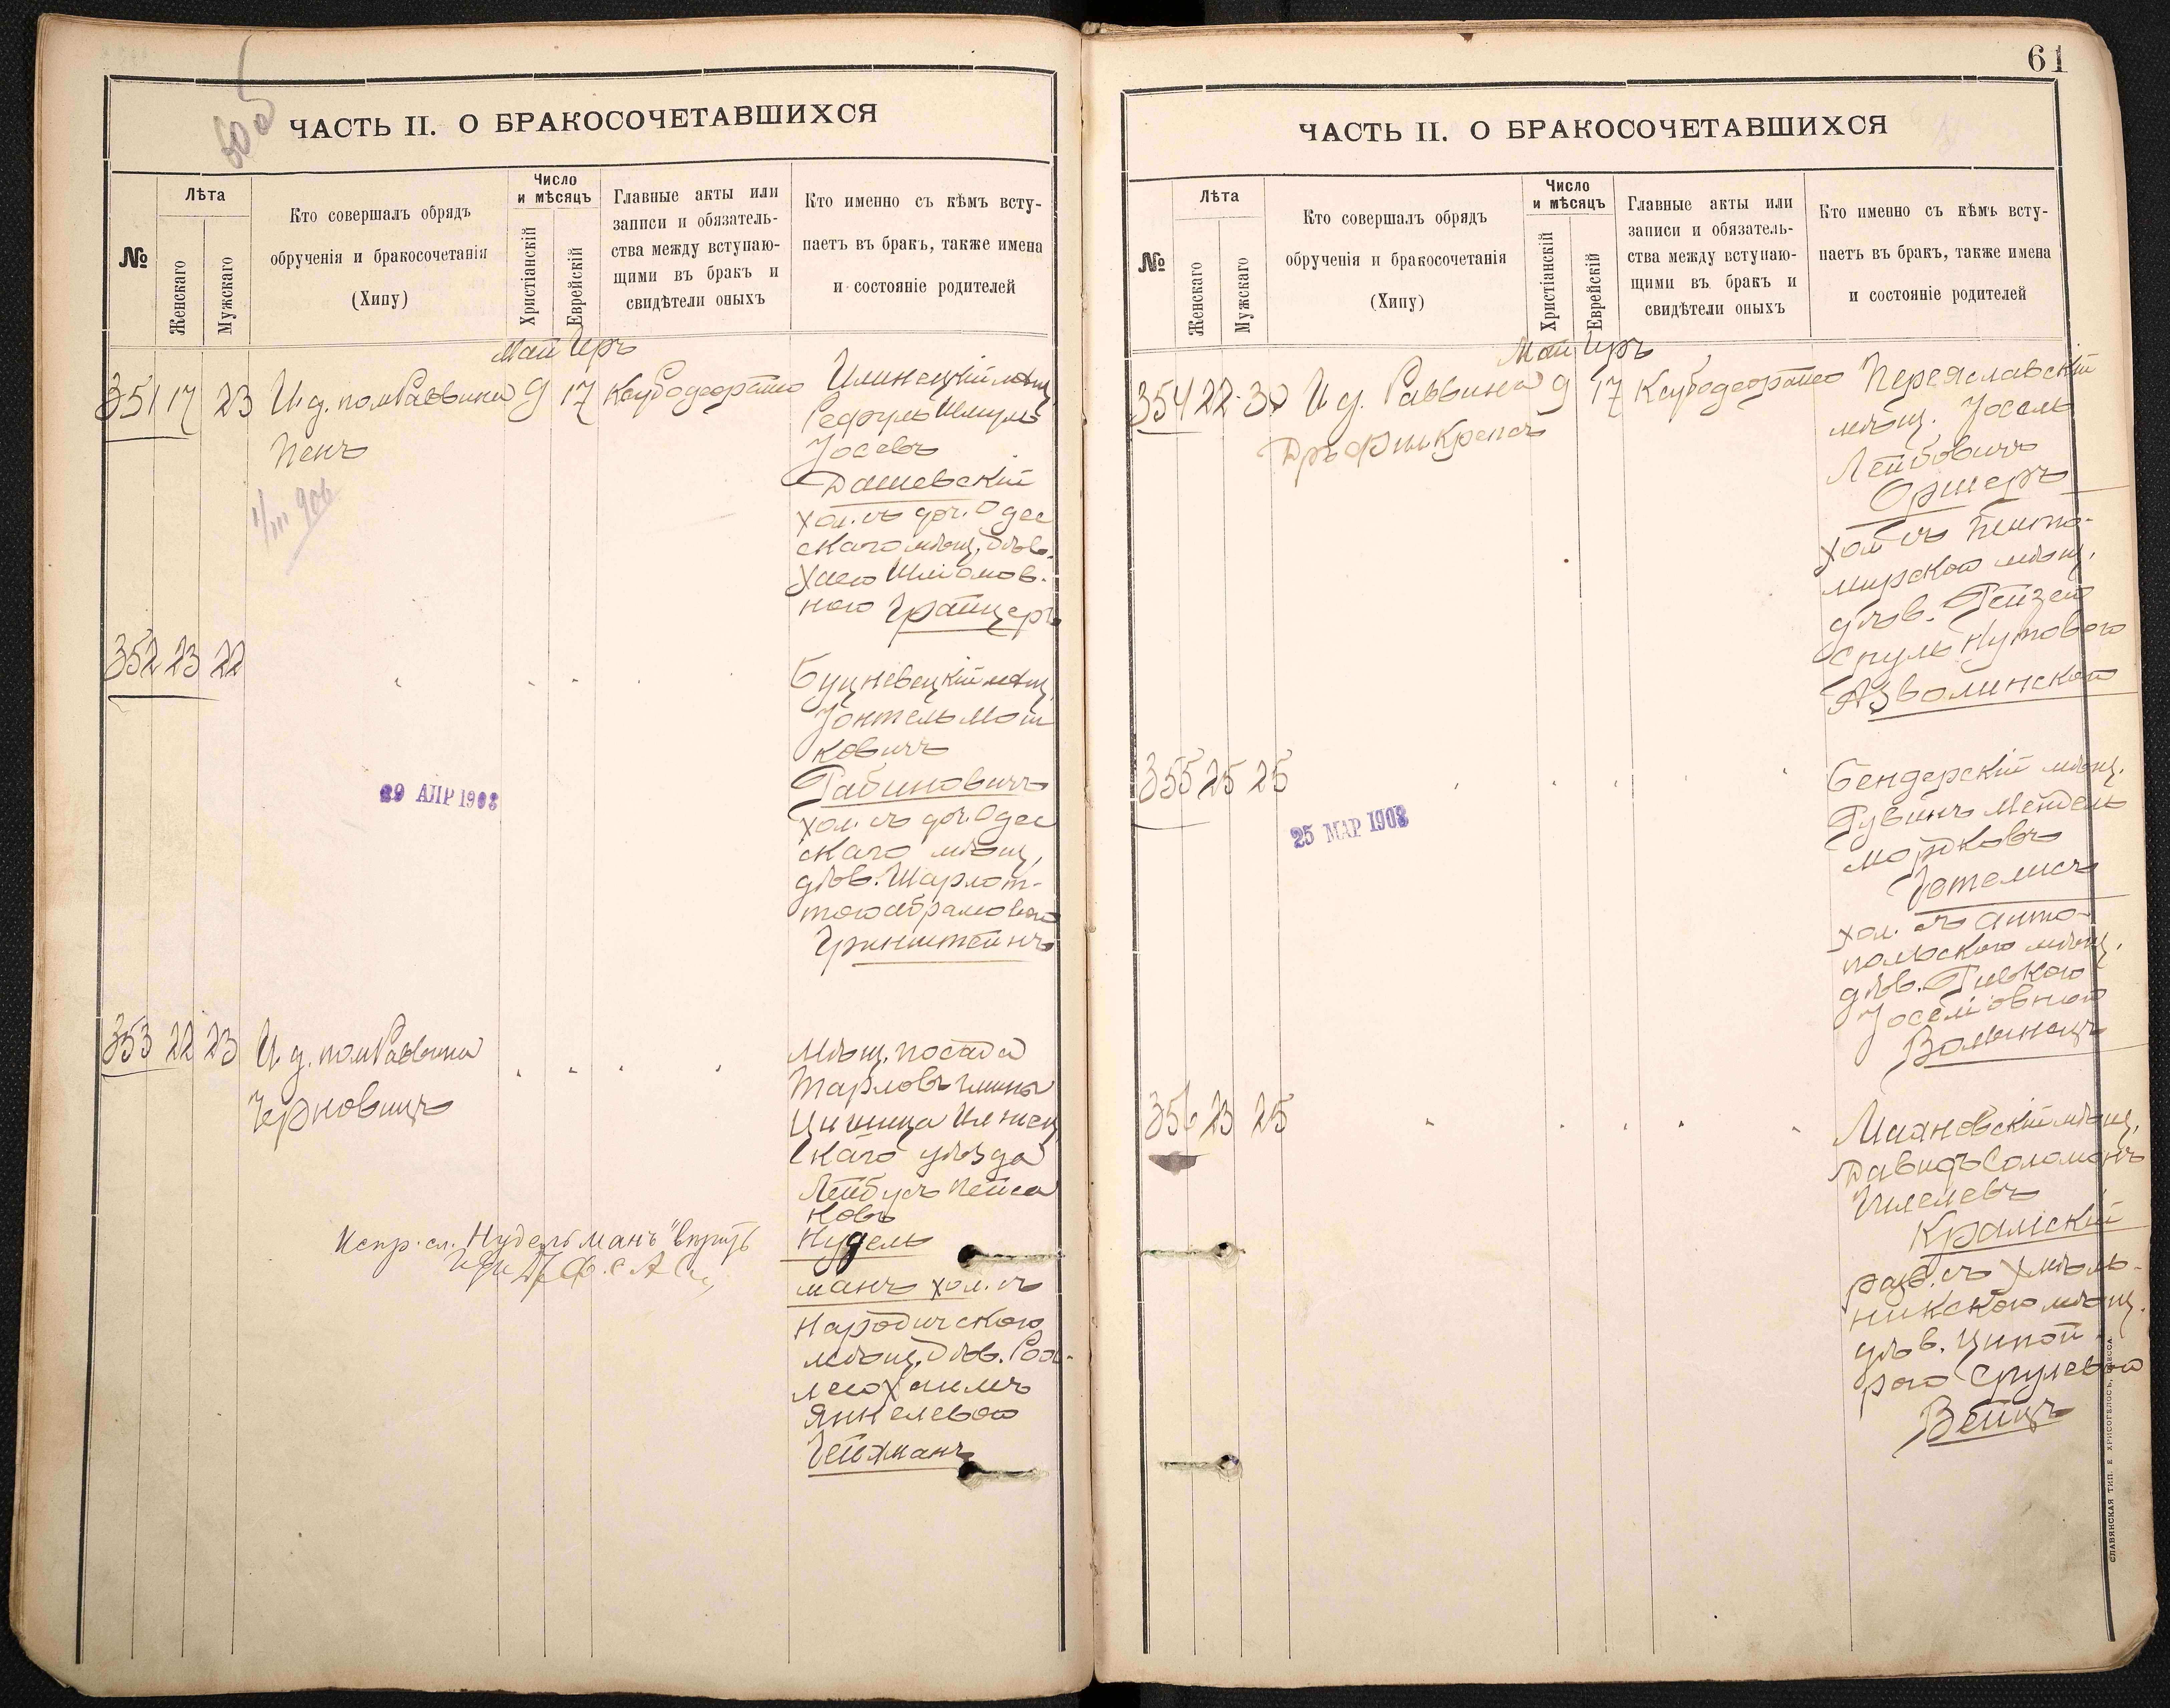 60 об
ЧАСТЬ II. О БРАКОСОЧЕТАВШИХСЯ
№
Лѣта
Женскаго
Мужскаго
Кто совершалъ обрядъ
обрученія и бракосочетанія
(Хипу)
Число
и мѣсяцъ
Христіанскій
Еврейскій
Главные акты или
записи и обязатель-
ства между вступаю-
щими въ бракъ и
свидѣтели оныхъ
Кто именно съ кѣмъ всту-
паетъ въ бракъ, также имена
и состояніе родителей
Май Иръ
351 17 23 И. д. пом Раввина 9 17
Пенъ
Илинецкій мѣщ.
Рефуль Шмуль
Іосевъ
Дашевскій
хол. съ доч. Одес
скаго мѣщ. дѣв.
Хаею Шліомов-
ною Грайцеръ
352 23 22
Іонтель Мош
ковичъ
Рабиновичъ
хол. съ доч. Одес
скаго мѣщ.
дѣв. Шарлот-
тою Абрамовною
Гринштейнъ
29 АПР 1903
353 22 23 И. д. пом Раввина
Черновицъ
Мѣщ. посада
Тарловъ гмины
Цишица Илжец
скаго уѣзда
Лейбусъ Пейса
ковъ
Нудель
манъ хол. съ
Народичскою
мѣщ. дѣв.
Янкелевою
Гейхманъ
Испр. сл. Нудельманъ" вѣрить
61
ЧАСТЬ II. О БРАКОСОЧЕТАВШИХСЯ
№
Лѣта
Женскаго
Мужскаго
Кто совершалъ обрядъ
обрученія и бракосочетанія
(Хипу)
Число
и мѣсяцъ
Христіанскій
Еврейскій
Главные акты или
записи и обязатель-
ства между вступаю-
щими въ бракъ и
свидѣтели оныхъ
Кто именно съ кѣмъ всту-
паетъ въ бракъ, также имена
и состояніе родителей
Май Иръ
354 22 30 И. д. Раввина 9 17
Дръ Фил Крепсъ
Переяславскій
мѣщ. Іосель
Лейбовичъ
Оршеръ
хол съ Жито-
мирскою мѣщ.
дѣв. Рейзею
Азволинскою
355 25 25
25 МАР 1903
Бендерскій мѣщ.
Рувинъ Мендель
Мордковъ
хол. съ Анто-
польскою мѣщ.
дѣв. Ривкою
Іоселіовною
Волынецъ
356 23 25
Давидъ Соломонъ
Гилелевъ
Крамскій
разв. съ Хмѣль-
никскою мѣщ.
дѣв. Ципой
рою Срулевою
Вейцъ
СЛАВЯНСКАЯ ТИП. Е ХРИСОГЕЛОСЪ, ОДЕССА.